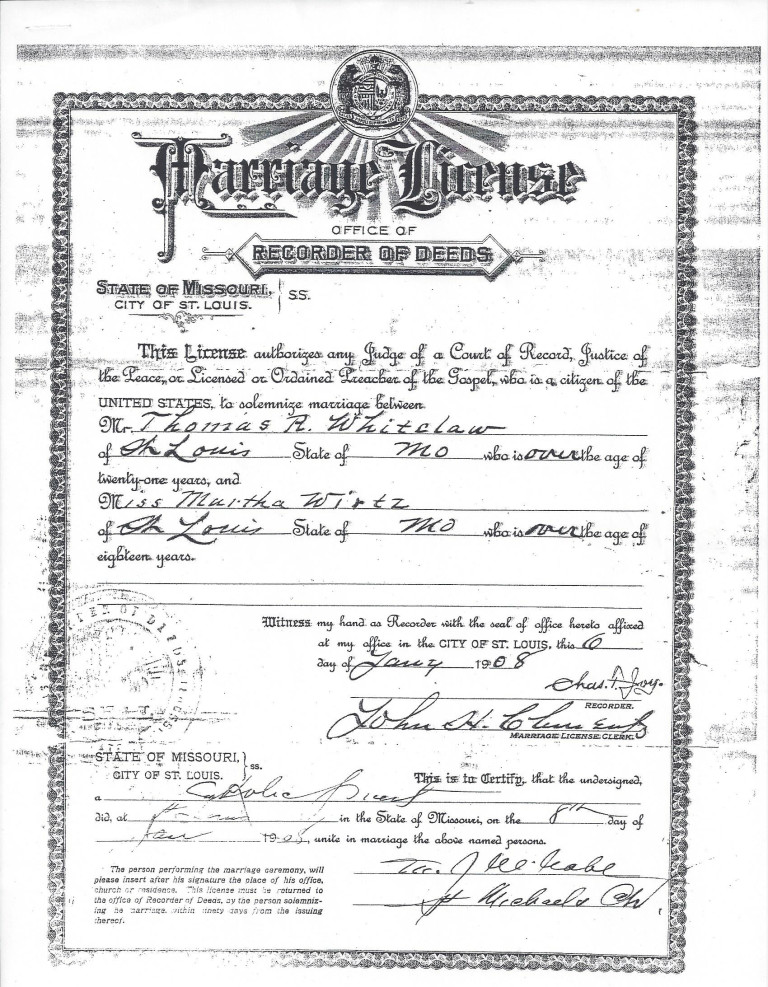 Marriage License
OFFICE OF
RECORDER OF DEEDS
STATE OF MISSOURI, SS.
CITY OF ST. LOUIS.
This License authorizes any Judge of a Court of Record, Justice of
the Peace, or Licensed or Ordained Preacher of the Gospel, who is a citizen of the
UNITED STATES, to solemnize marriage between
Mr. Thomas R. Whitelaw
of St Louis State of Mo who is over the age of
twenty-one years, and
Miss Martha Wirtz
of St Louis State of Mo who is over the age of
eighteen years.
Witness my hand as Recorder with the seal of office hereto affixed
at my office in the CITY OF ST. LOUIS, this 6
day of Jany 1908
Chas.
RECORDER.
John H.
MARRIAGE LICENSE CLERK.
STATE OF MISSOURI, ss.
CITY OF ST. LOUIS.
This is to Certify, that the undersigned,
a Catholic Priest
did, at in the State of Missouri, on the 8th day of
Jan 1908, unite in marriage the above named persons.
The person performing the marriage ceremony, will
please insert after his signature the place of his office,
church or residence. This license must be returned to
the office of Recorder of Deeds, by the person solemniz-
ing he marriage, within ninety days from the issuing
thereof.
Wm. J McCabe
St Michaels Ch